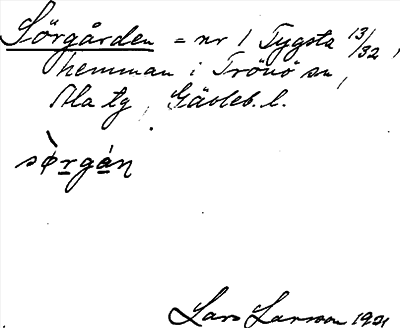 Sörgården = nr 1 Tygsta 13/32,
hemman i Trönö sn,
Ala tg, Gävleb. l.
sø̀rgán
Lars Larsson 1901